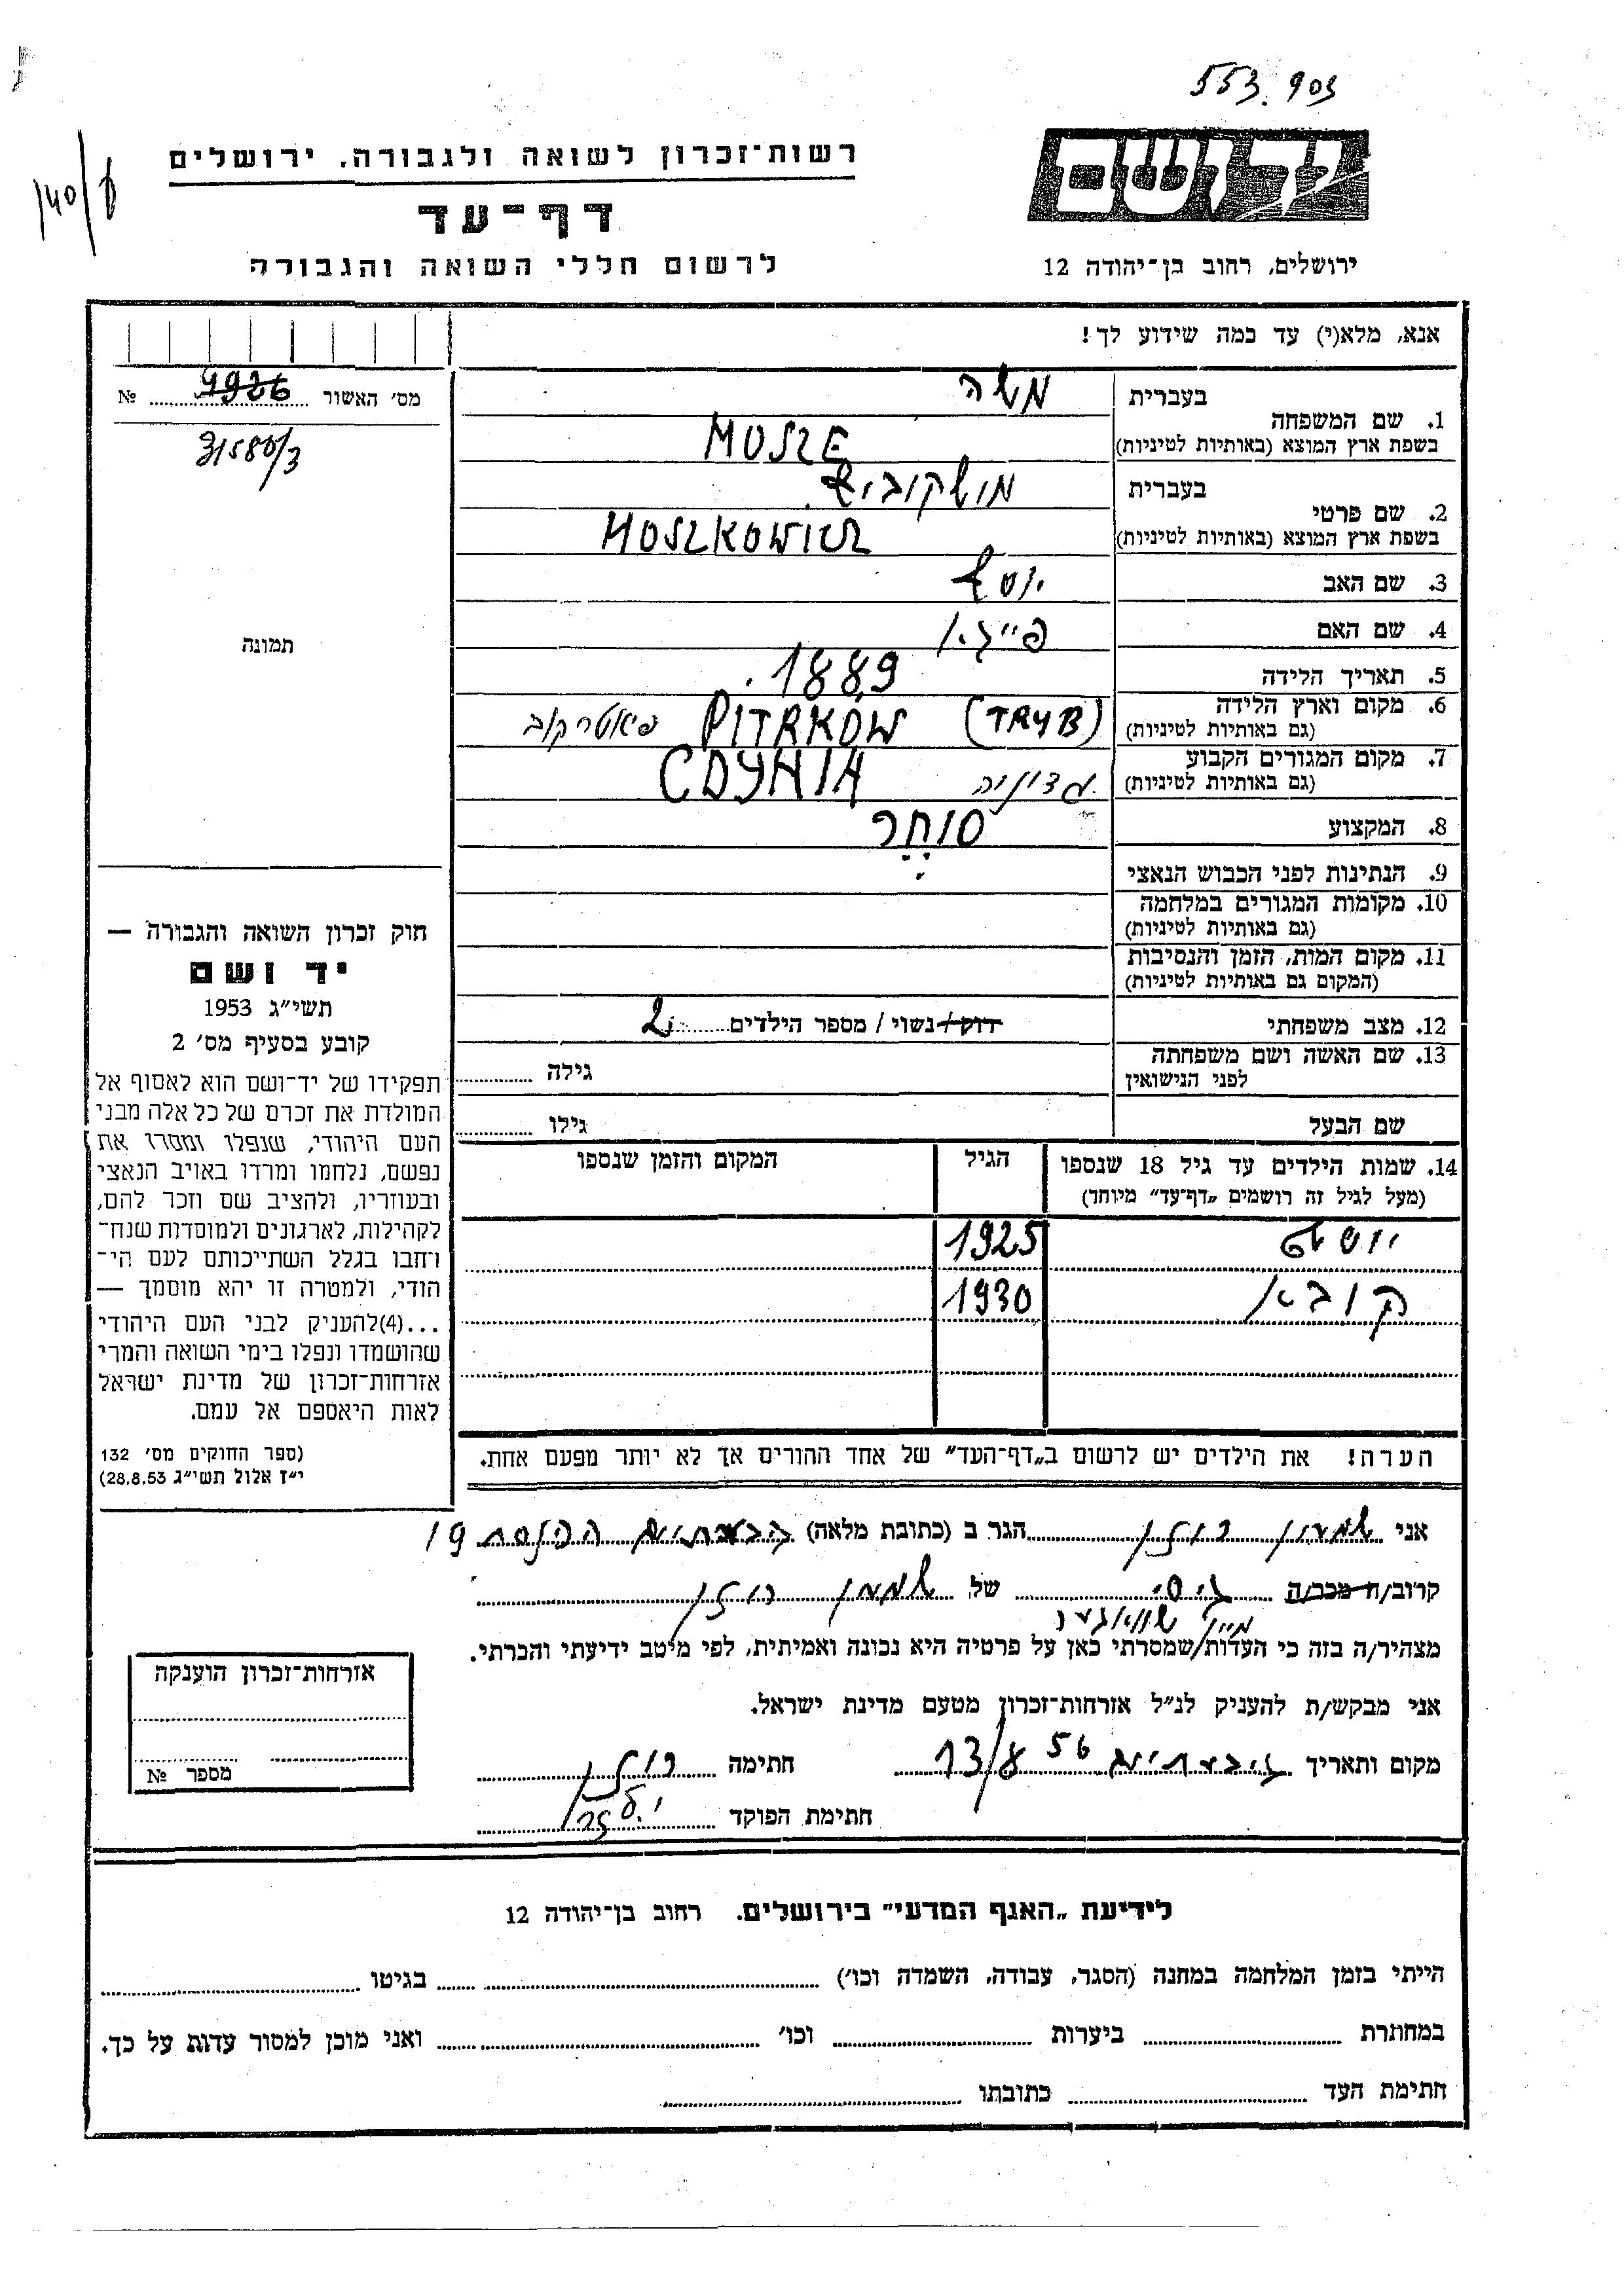 553.903
140/
רשות־זכרון לשואה ולגבורה. ירושלים
דף־עד
לרשום חללי השואה והגבורה
יד ושם
ירושלים, רחוב בן־יהודה 12
אנא, מלא(י) עד כמה שידוע לך!
מס׳ האשור 4926 №
31580/3
תמונה
1. שם המשפחה בעברית משה
בשפת ארץ המוצא (באותיות לטיניות) MOSZE
2. שם פרטי בעברית מושקוביץ
בשפת ארץ המוצא (באותיות לטיניות) MOSZKOWICZ
3. שם האב יוסף
4. שם האם פייגא
5. תאריך הלידה 1889
6. מקום וארץ הלידה
(גם באותיות לטיניות) PITRKOW (TRYB) פיאטרקוב
7. מקום המגורים הקבוע
(גם באותיות לטיניות) גדוניה GDYNIA
8. המקצוע סוחר
9. הנתינות לפני הכבוש הנאצי
10. מקומות המגורים במלחמה
(גם באותיות לטיניות)
11. מקום המות, הזמן והנסיבות
(המקום גם באותיות לטיניות)
12. מצב משפחתי רוק / נשוי / מספר הילדים 2
13. שם האשה ושם משפחתה גילה
לפני הנישואין
שם הבעל גילו
חוק זכרון השואה והגבורה —
יד ושם
תשי״ג 1953
קובע בסעיף מס׳ 2
תפקידו של יד־ושם הוא לאסוף אל
המולדת את זכרם של כל אלה מבני
העם היהודי, שנפלו ומסרו את
נפשם, נלחמו ומרדו באויב הנאצי
ובעוזריו, ולהציב שם וזכר להם,
לקהילות, לארגונים ולמוסדות שנח־
רבו בגלל השתייכותם לעם הי־
הודי, ולמטרה זו יהא מוסמך —
...(4)להעניק לבני העם היהודי
שהושמדו ונפלו בימי השואה והמרי
אזרחות־זכרון של מדינת ישראל
לאות היאספם אל עמם.
(ספר החוקים מס׳ 132
י״ז אלול תשי״ג 28.8.53)
14. שמות הילדים עד גיל 18 שנספו הגיל המקום והזמן שנספו
(מעל לגיל זה רושמים „דף־עד״ מיוחד)
יוסף 1925
קובא 1930
הערה! את הילדים יש לרשום ב„דף־העד״ של אחד ההורים אך לא יותר מפעם אחת.
אני שמעון רוזן הגר ב (כתובת מלאה) גבעתיים הכנסת 19
קרוב/ה מכר/ה גיסי של שמעון רוזן
מיין שוואגער
מצהיר/ה בזה כי העדות/שמסרתי כאן על פרטיה היא נכונה ואמיתית, לפי מיטב ידיעתי והכרתי.
אני מבקש/ת להעניק לנ״ל אזרחות־זכרון מטעם מדינת ישראל.
מקום ותאריך גבעתיים 13/8 56 חתימה רוזן
חתימת הפוקד
אזרחות־זכרון הוענקה
מספר №
לידיעת „האגף המדעי״ בירושלים. רחוב בן־יהודה 12
הייתי בזמן המלחמה במחנה (הסגר, עבודה, השמדה וכו׳) בגיטו
במחתרת ביערות וכו׳ ואני מוכן למסור עדות על כך.
חתימת העד כתובתו